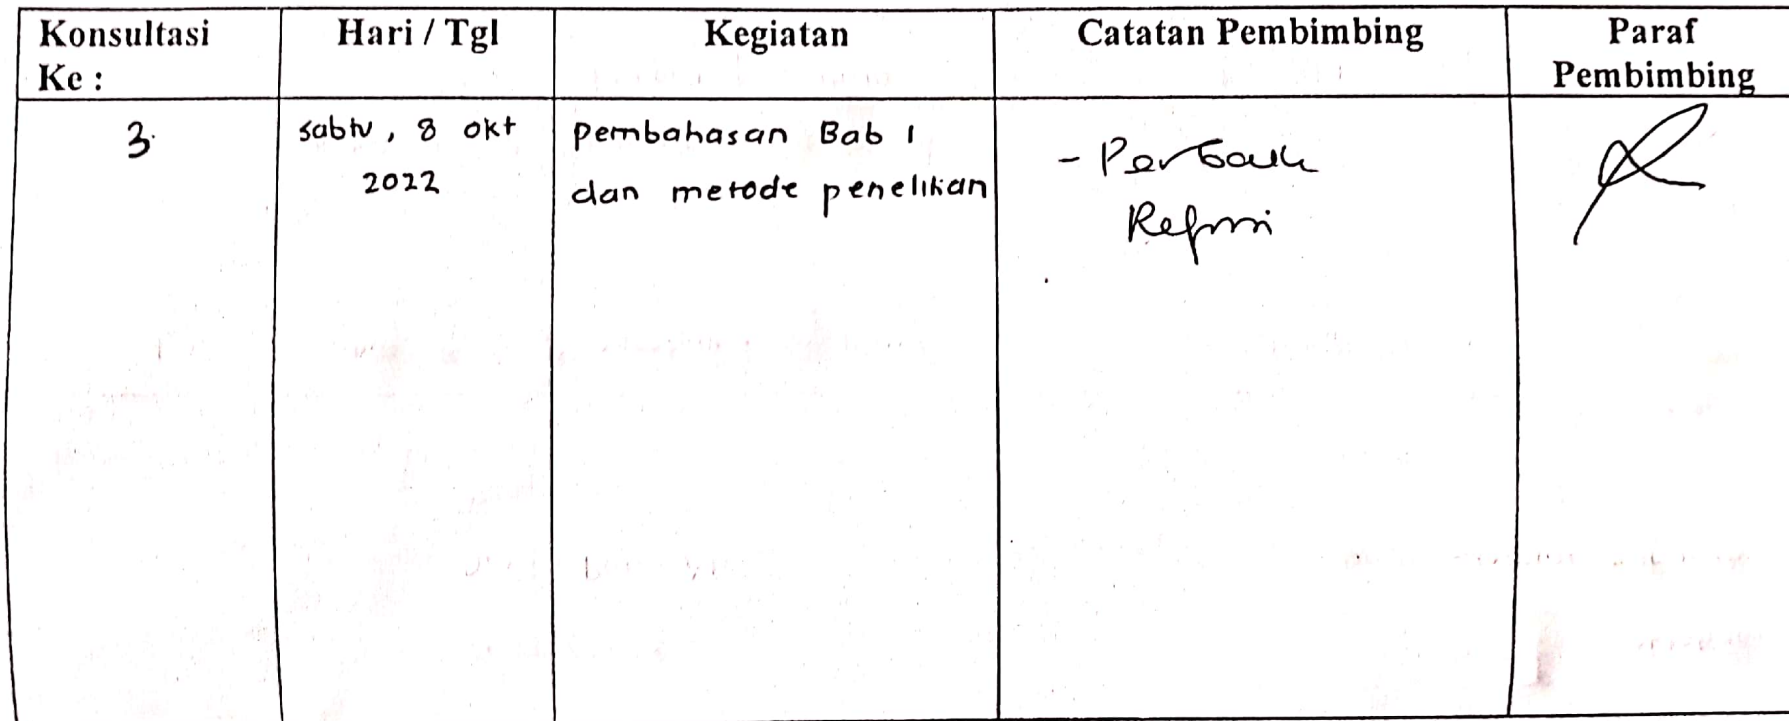 Konsultasi Ke :
Hari / Tgl
Kegiatan
Catatan Pembimbing
Paraf Pembimbing
3.
sabtu, 8 okt
2022
pembahasan Bab 1
dan metode penelitian
- Perbaiki